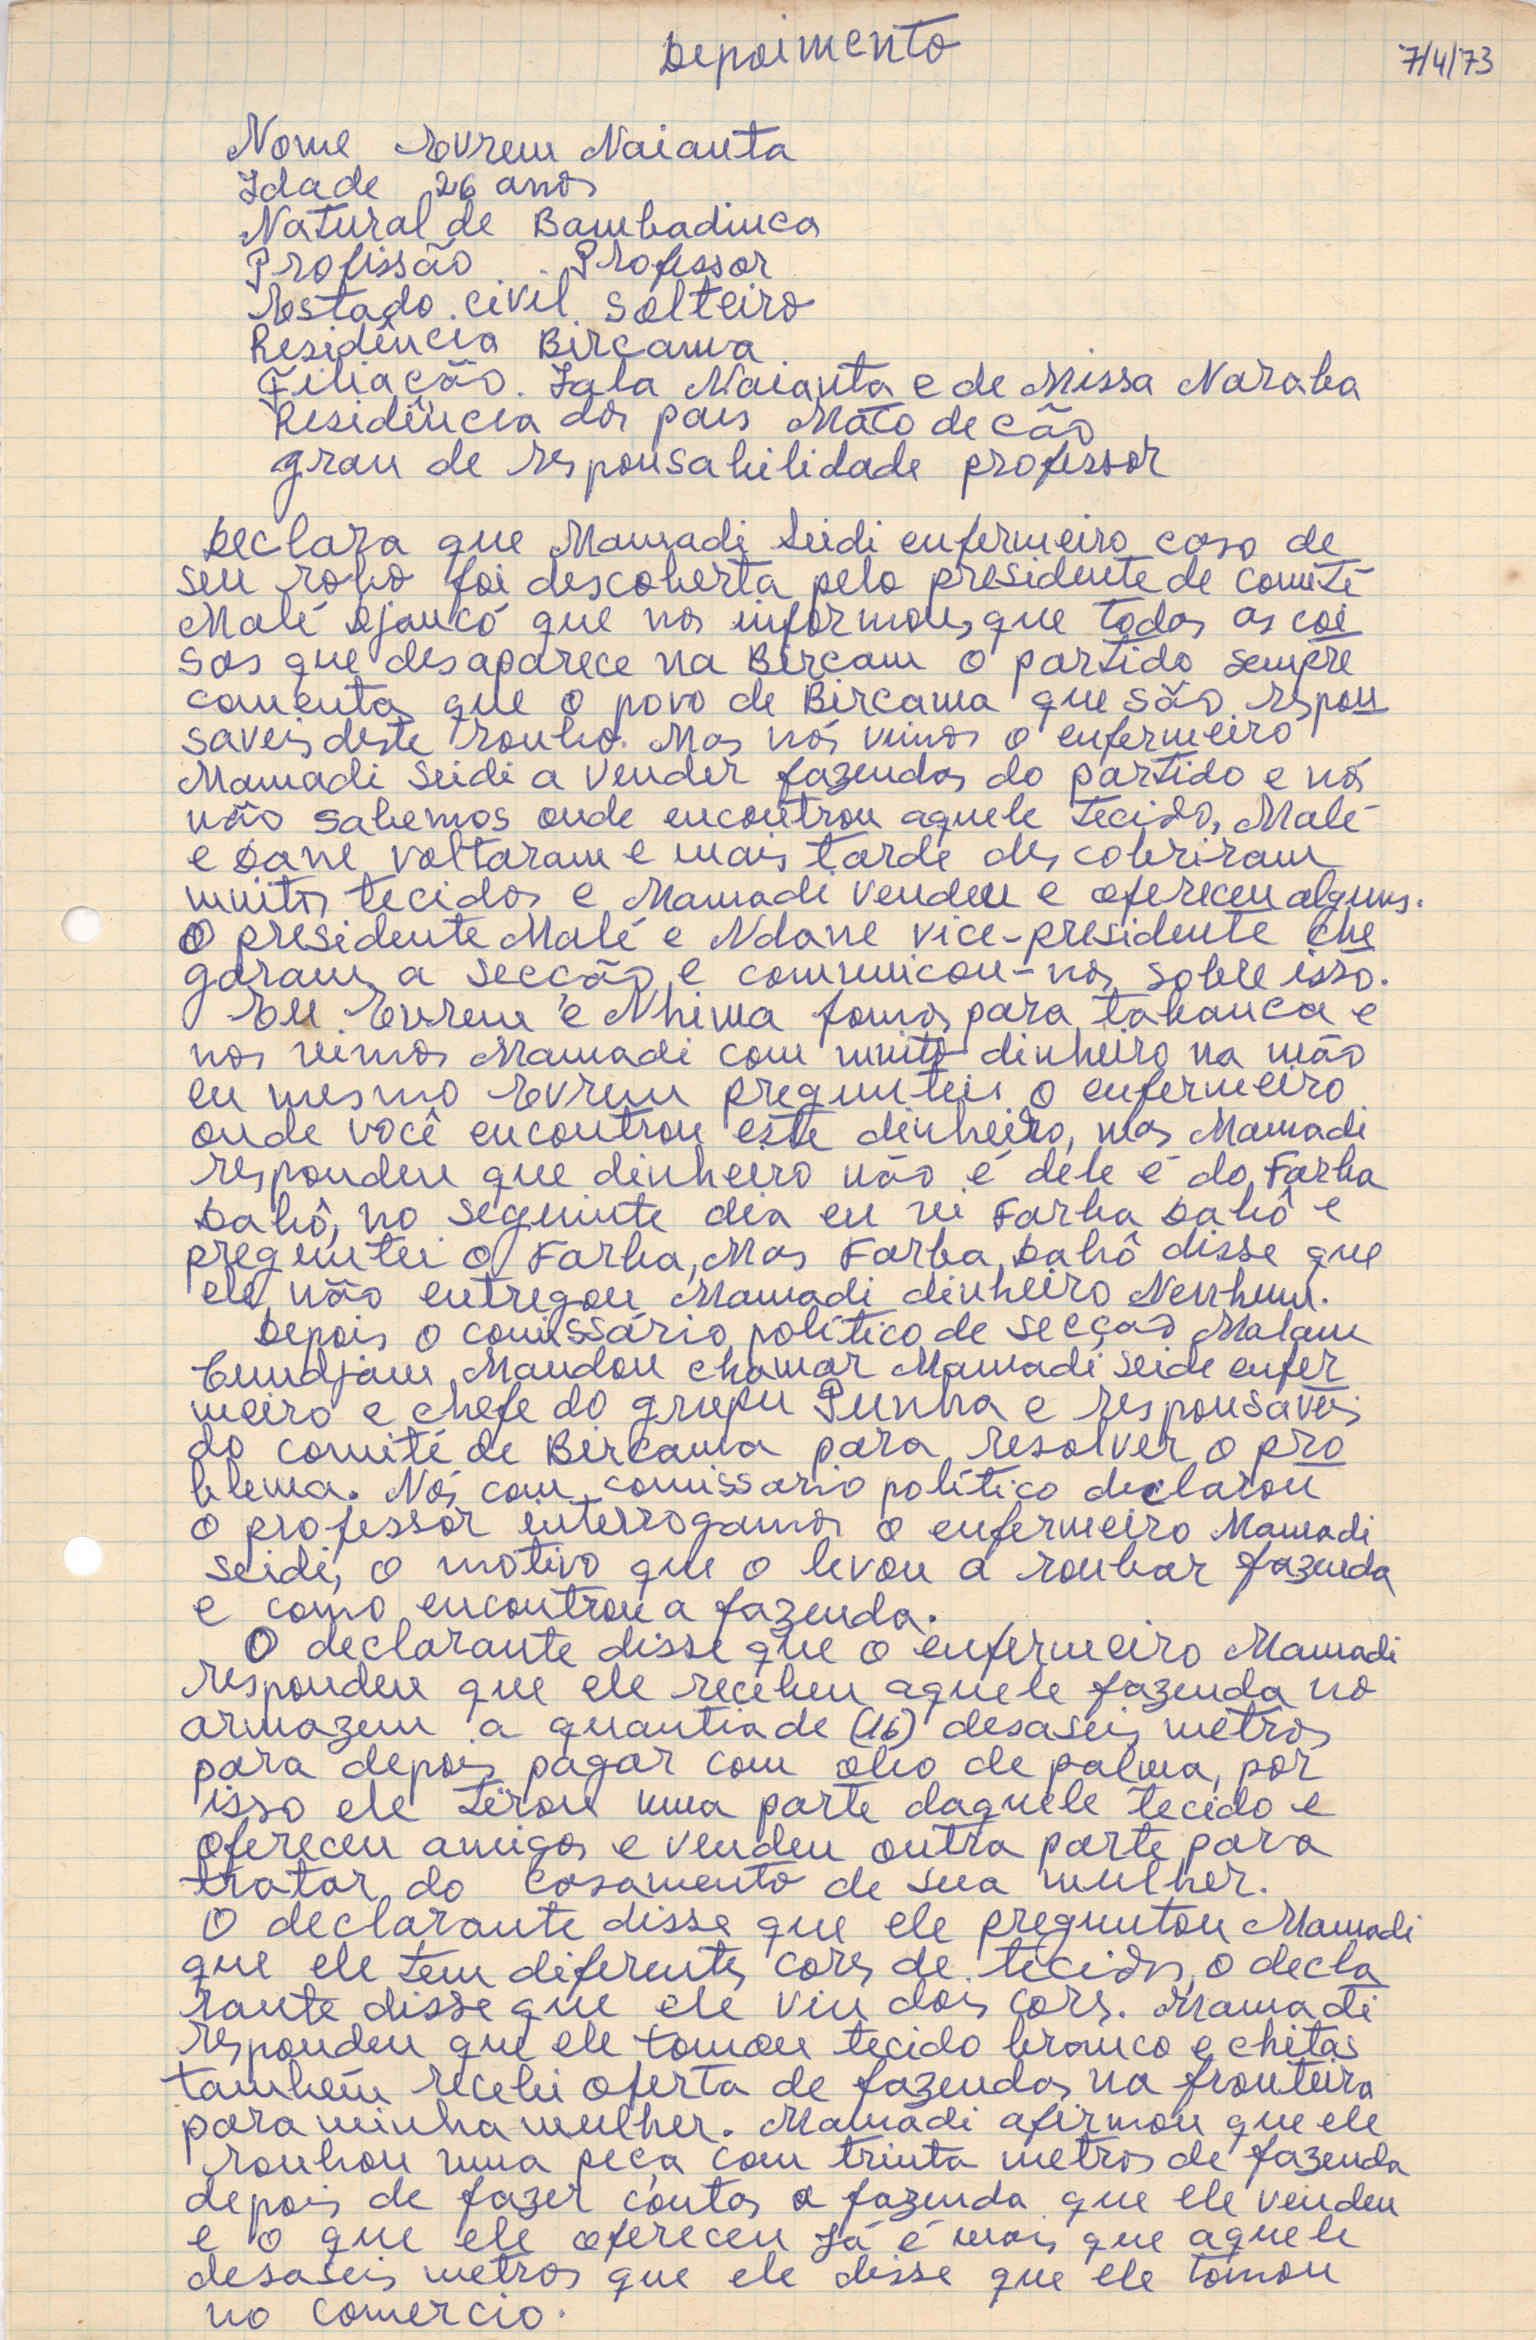 Depoimento
7/4/73
Nome Evrem Naianta
Idade 26 anos
Natural de Bambadinca
Profissão Professor
Estado civil solteiro
Residência Bircama
Filiação. Jala Naianta e de Missa Naraba
Residência dos pais Mato de cão
grau de responsabilidade professor
Declara que Mamadi Seidi enfermeiro caso de
seu robo foi descoberta pelo presidente de comité
Malé Djancó que nos informou, que todas as coi
sas que desaparece na Bircam o partido sempre
comenta que o povo de Bircama que são respon
saveis deste roubo. Mas nós vimos o enfermeiro
Mamadi Seidi a vender fazendas do partido e nós
não sabemos onde encontrou aquele tecido, Malé
e Dane voltaram e mais tarde descobriram
muitos tecidos e Mamadi vendeu e ofereceu alguns.
O presidente Malé e Ndane vice-presidente che
garam a secção e communicou-nos sobre isso.
Eu Evrem e Nhima fomos para tabanca e
nos vimos Mamadi com muito dinheiro na mão
eu mesmo Evrem preguntei o enfermeiro
onde você encontrou este dinheiro, mas Mamadi
respondeu que dinheiro não é dele é do Farba
Dabô, no seguinte dia eu vi Farba Dabô e
preguntei o Farba, Mas Farba Dabô disse que
ele não entregou Mamadi dinheiro Nenhum.
Depois o comissário político de secção Malam
Cumdjam Mandou chamar Mamadi Seide enfer
meiro e chefe do grupu Punha e responsaveis
do comité de Bircama para resolver o pro
blema. Nós com comissario político declarou
o professor interrogamos o enfermeiro Mamadi
Seidi, o motivo que o levou a roubar fazenda
e como encontrou a fazenda.
O declarante disse que o enfermeiro Mamadi
respondeu que ele recebeu aquele fazenda no
armazem a quantia de (16) desaseis metros
para depois pagar com olio de palma, por
isso ele tirou uma parte daquele tecido e
ofereceu amigos e vendeu outra parte para
tratar do casamento de sua mulher.
O declarante disse que ele preguntou Mamadi
que ele tem diferentes cores de tecidos, o decla
rante disse que ele viu dois cores. Mamadi
respondeu que ele tomou tecido branco e chitas
também recebi oferta de fazendas na fronteira
para minha mulher. Mamadi afirmou que ele
roubou uma peça com trinta metros de fazenda
depois de fazer contas a fazenda que ele vendeu
e o que ele ofereceu já é mais que aquele
desaseis metros que ele disse que ele tomou
no comercio.